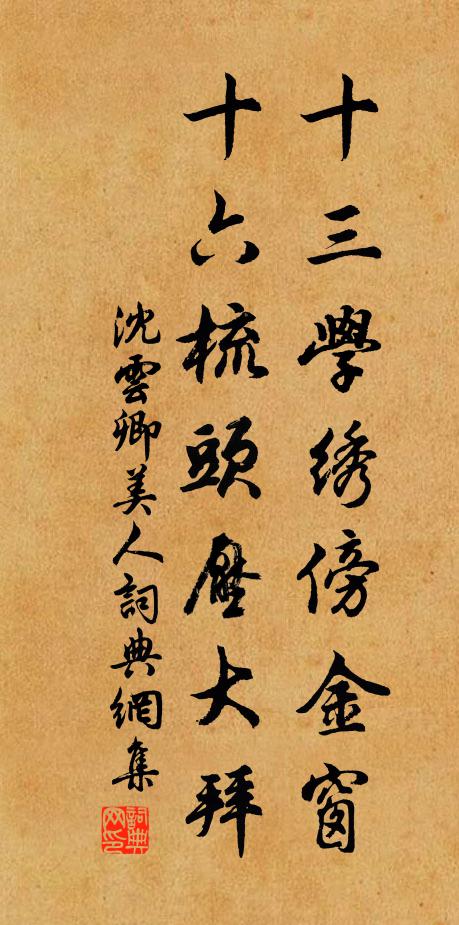 十三學綉傍金窗
十六梳頭壓大拜
沈雲卿美人詞典網集
詞典网印